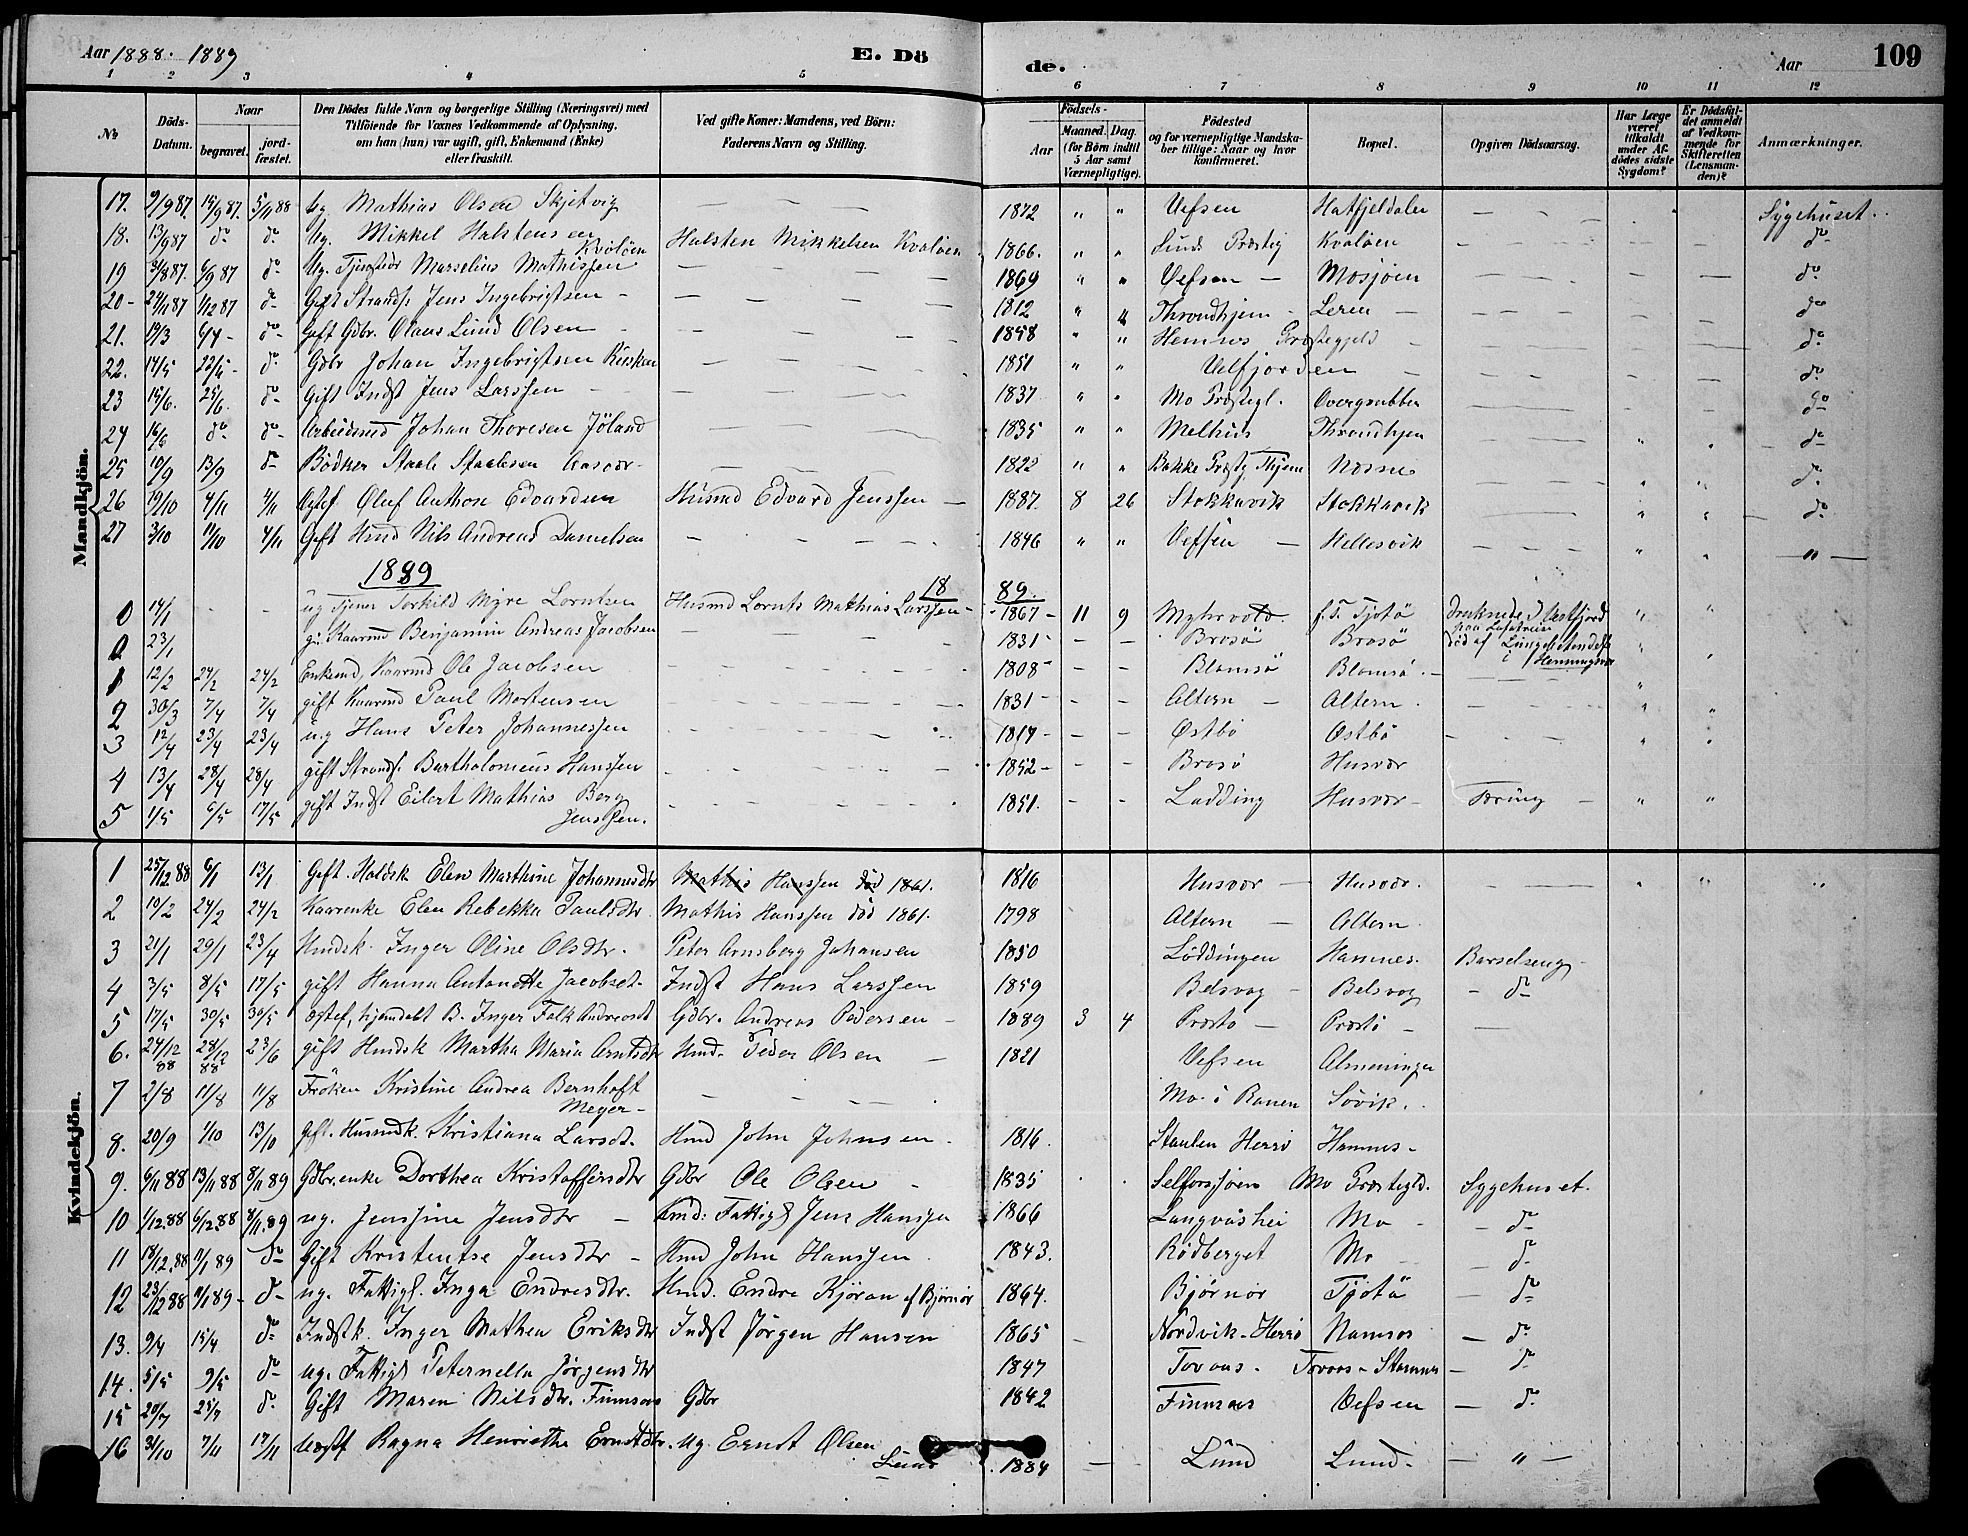 Aar 1888. 1889 E. Dö de. Aar 109
1 2 3 4 5 6 7 8 9 10 11 12
No Döds-Datum. Naar begravet. jordfæstet. Den Dödes fulde Navn og borgerlige Stilling (Næringsvei) med Tilföiende for Voxnes Vedkommende af Oplysning, om han (hun) var ugift, gift, Enkemand (Enke) eller fraskilt. Ved gifte Koner: Mandens, ved Börn: Faderens Navn og Stilling. Födsels- Aar Maaned. Dag. (for Börn indtil 5 Aar samt Værnepligtige). Födested og for værnepligtige Mandskaber tillige: Naar og hvor konfirmeret. Bopæl. Opgiven Dödsaarsag. Har Læge været tilkaldt under Afdödes sidste Sygdom? Er Dödsfaldet anmeldt af Vedkommende for Skifteretten (Lensmanden)? Anmærkninger.
Mandkjön.
17. 9/9 87. 15/9 87. 5/11 88 Ug. Mathias Olsen Skjetvig — 1872 " " Vefsen Hatfjeldalen — Sygehuset.
18. 13/9 87 do do Ug. Mikkel Halstensen Kvaløen Halsten Mikkelsen Kvaløen 1866. " " Kvaløen — do
19 31/8 87. 6/9 87 do Ug. Marselius Mathissen — 1869 " " Vefsen — Mosjøen — do
20 - 24/11 87 1/12 87 do Gift Strands. Jens Ingebrigtsen — 1812 " " Throndhjem - Leren — do
21. 19/3 6/4 - do Gift Gdbr. Olaus Lund Olsen — 1848 " " Hemnes Præstegjeld — do
22. 14/5 22/5 - do Gdbr Johan Ingebrigtsen — 1851 " " Velfjorden — do
23 15/6. 25/6. do Gift Indst Jens Larssen — 1837 " " Mo Præstegl. — do
24 16/6 do do Arbeidsmd Johan Thoresen Jöland — 1835 " " Melhus Throndhjem — " " do
25 10/9 13/9 do Bödker Staale Staalesen — 1822 " " Bakke — " " do
26 19/10 4/11 4/11 Ægtef. Oluf Anthon Edvardsen Husmd Edvard Jenssen — 1887. 8 26 Stokkavik Stokkavik — " " do
27 3/10 11/10 4/11 Gift Hmd Nils Andreas Danielsen — 1846 " " Vefsen — Hellesvik — " " "
1889 18 89.
0 14/1 - - ug Tjener Torkild Myre Lorntsen Husmd Lornts Mathias Larssen - 1867 - 11 9 f. T. Tjøtø druknede i Vestfjord " "
0 23/1 g: Kaarmd Benjamin Andreas Jacobsen — 1831 - - Brasö Brasö död af Lungebetændelse i Henningsvær " "
1 12/2 24/2 24/2 Enkemd, Kaarmd Ole Jacobsen — 1808 - - Blomsö Blomsö. — "
2 30/3 7/4 7/4 gift Kaarmd Paul Mortensen — 1831 - - Altern — Altern. " "
3 12/4 23/4 23/4 ug Hans Peter Johannessen — 1814 - - Østbö Østbö — " "
4 13/4 28/4 28/4 gift Strands. Bartholomeus Hanssen — 1852 - - Brasö Husvær
5 1/5 6/5 17/5 gift Indst Eilert Mathias Berg Jenssen. — 1851. - - Lødding Husvær — Tæring — " "
Kvindekjön.
1 25/12 88 6/1 13/1 Gift. Holdsk Elen Marthine Johannesdtr Mathis Hanssen död 1861. 1816 Husvær — Husvær. — " " "
2 10/2 24/2 24/2 Kaarenke Elen Rebekka Paulsdtr. Mathis Hanssen död 1861. 1798 Altern — Altern.
3 21/1 29/1 23/4 Hmdsk. Inger Oline Olsdtr. Peter Arnsberg Johansen 1850 Löddingen Hamnes. Barselseng
4 3/5 8/5 17/5 gift Hanna Antonette Jacobsdt. Indst Hans Larssen 1859 Belsvag — Belsvag - do
5 17/5 30/5 30/5 Ægtef, hjemdøbt B. Inger Falk Andreasdt Gdbr. Andreas Pedersen — 1889 3 4 Præstö — Præstö — —
6. 24/12 88 28/12 88 23/6 gift Hmdsk Martha Maria Arntsdtr Hmd. Peder Olsen — 1821 Vefsen Almeninger
7 2/8 11/8 11/8 Fröken Kristine Andrea Bernhoft Meyer — — Mo i Ranen Søvik.
8. 20/9 1/10 13/10 Gft. Husmdk. Kristiana Larsdt. Hmd John Johnsen. 1816. Staulen Herrö Hamnes -
9. 6/11 88 13/11 88 8/11 89 Gdbr.enke Dorthea Kristoffersdtr Gdbr Ole Olsen - 1835 Selforssjøen Mo Præstegld. Sygehuset.
10 1/12.88 6/12.88 8/11.89 ug. Jenssine Jensdtr — Fattigl Jens Hanssen 1866 Langvashei Mo - - do
11 18/12.88 11/1 89 do Gift Kristentse Jensdtr — Hmd John Hanssen. 1843. Rödberget Mo — do
12 23/12 88 11/1 89 - do ug. Fattigl. Inga Endresdtr. Hmd. Endre Kjöran af Bjørnör 1864. Bjørnör Tjøtö — do
13. 9/4 15/4 do Indstk. Inger Mathea Eriksdtr Indst Jörgen Hansen 1865 Nordvik - Herrö Namsos — do
14. 5/5 9/5 do ug. Fattigl Peternella Jörgensdtr 1847 Tovaas. Tovaas - Stamnes — do
15 20/7 25/7 do Gift Maren Nilsdtr. Finnsaas Gdbr 1842 Finnsaas Vefsen — do
16 31/10 7/11 17/11 Uægtf Ragna Henriette Ernstdtr. Ug. Ernst Olsen Lund 1884 — Lund Lund. — " —